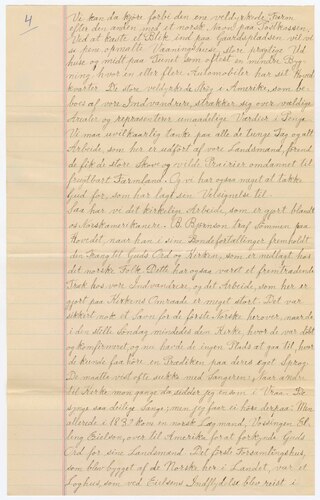 4
Vi kan da kjöre forbi den ene veldyrkede Farm
efter den anden med et norsk Navn paa Postkassen.
Ved at kaste et Blik ind paa Gaardspladsen vil vi
se pene opmalte Vaaningshuse, store prægtige Ud
huse og midt paa Tunet som oftest en mindre Byg
ning, hvor en eller flere Automobiler har sit Hoved
kvarter. De store veldyrkede Strög i Amerika, som be
boes af vore Indvandrere, strækker sig over vældige
Arealer og repræsenterer umaadelige Værdier i Penge.
Vi maa uvilkaarlig tænke paa alle de tunge Tag og alt
Arbeide, som her er udfört af vore Landsmænd, förend
de fik de store Skove og vilde Prærier omdannet til
frugtbart Farmland. Og vi har ogsaa meget at takke
Gud for, som har lagt sen Velsignelse til.
Saa har vi det kirkelige Arbeide, som er gjort blandt
os Norskamerikanere. B. Björnson traf Sømmen paa
Hovedet, naar han i sine Bondefortællinger fremholdt
den Trang til Guds Ord og Kirken, som er midlagt hos
det norske Folk. Dette har ogsaa været et fremtrædende
Træk hos vore Indvandrere, og det Arbeide, som her er
gjort paa Kirkens Omraade er meget stort. Det var
sikkert nok et Savn for de förste Norske herover, naar de
i den stille Söndag mindedes den Kirke, hvor de var döbt
og konfirmeret, og nu havde de ingen Plads at gaa til, hvor
de kunde faa höre en Prædiken paa deres eget Sprog.
De maatte vist ofte sukke med Sangeren: Naar andre
til Kirke mon gange, da sidder jeg ensom i Vraa. De
synge saa deilige Sange, men jeg faar ei höre derpaa. Men
allerede i 1837 kom en norsk Lægmand, Vossingen El
ling Eielson, over til Amerika for at forkynde Guds
Ord for sine Landsmænd. Det förste Forsamlingshus,
som blev bygget af de Norske her i Landet, var et
Loghus, som ved Eielsens Indflydelse blev reist i